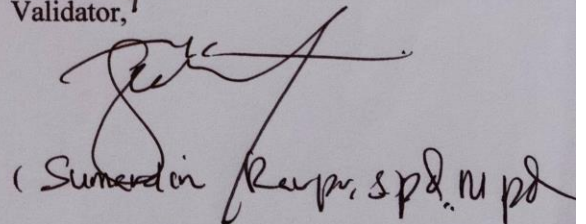 Validator,
( Sumardin Raupu, S.pd., M.pd